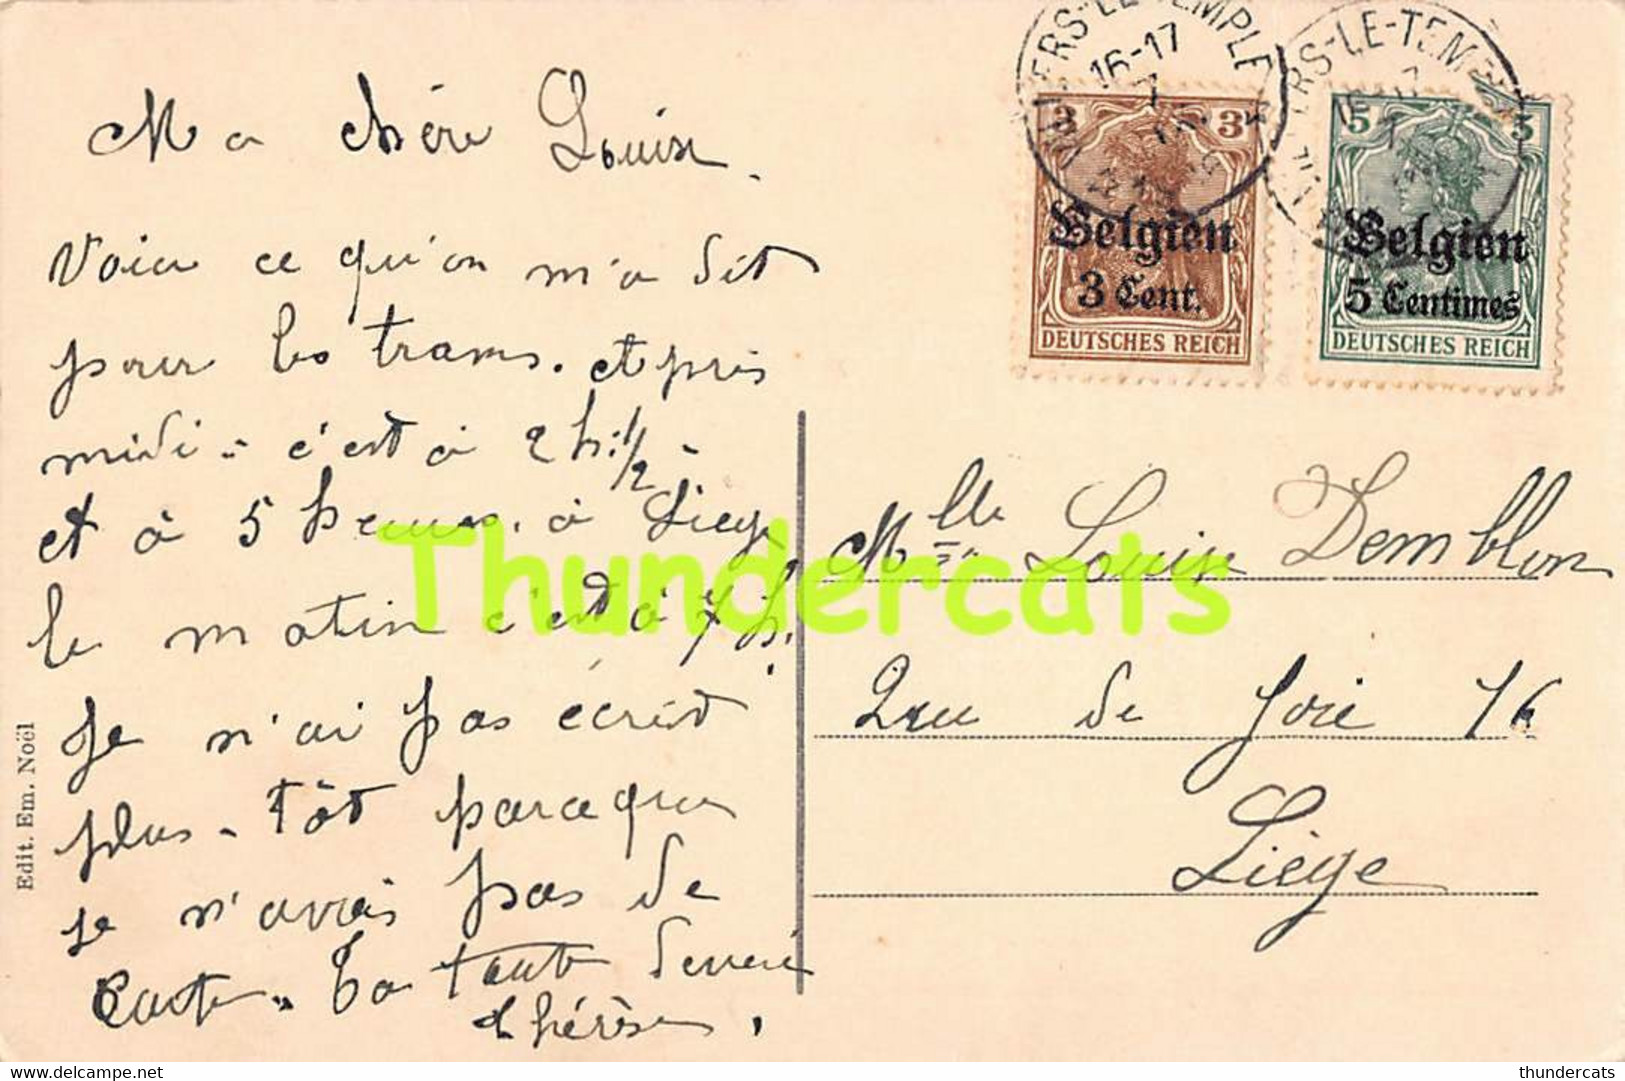 Ma chère Louise.
Voici ce qu'on m'a dit
pour les trams. et près
midi - c'est à 2 h. 1/2 -
et à 5 heures. à Liege
le matin c'est à 7 h.
Je n'ai pas écrit
plus-tôt parce que
je n'avais pas de
Carte. Ta tante
Thérèse.
Edit. Em. Noël
VILLERS-LE-TEMPLE
16-17
7
ERS-LE-TEM
3 3
Belgien
3 Cent.
DEUTSCHES REICH
5 5
Belgien
5 Centimes
DEUTSCHES REICH
Mlle Louise Demblon
Rue de Joie 16
Liège
Thundercats
www.delcampe.net
thundercats